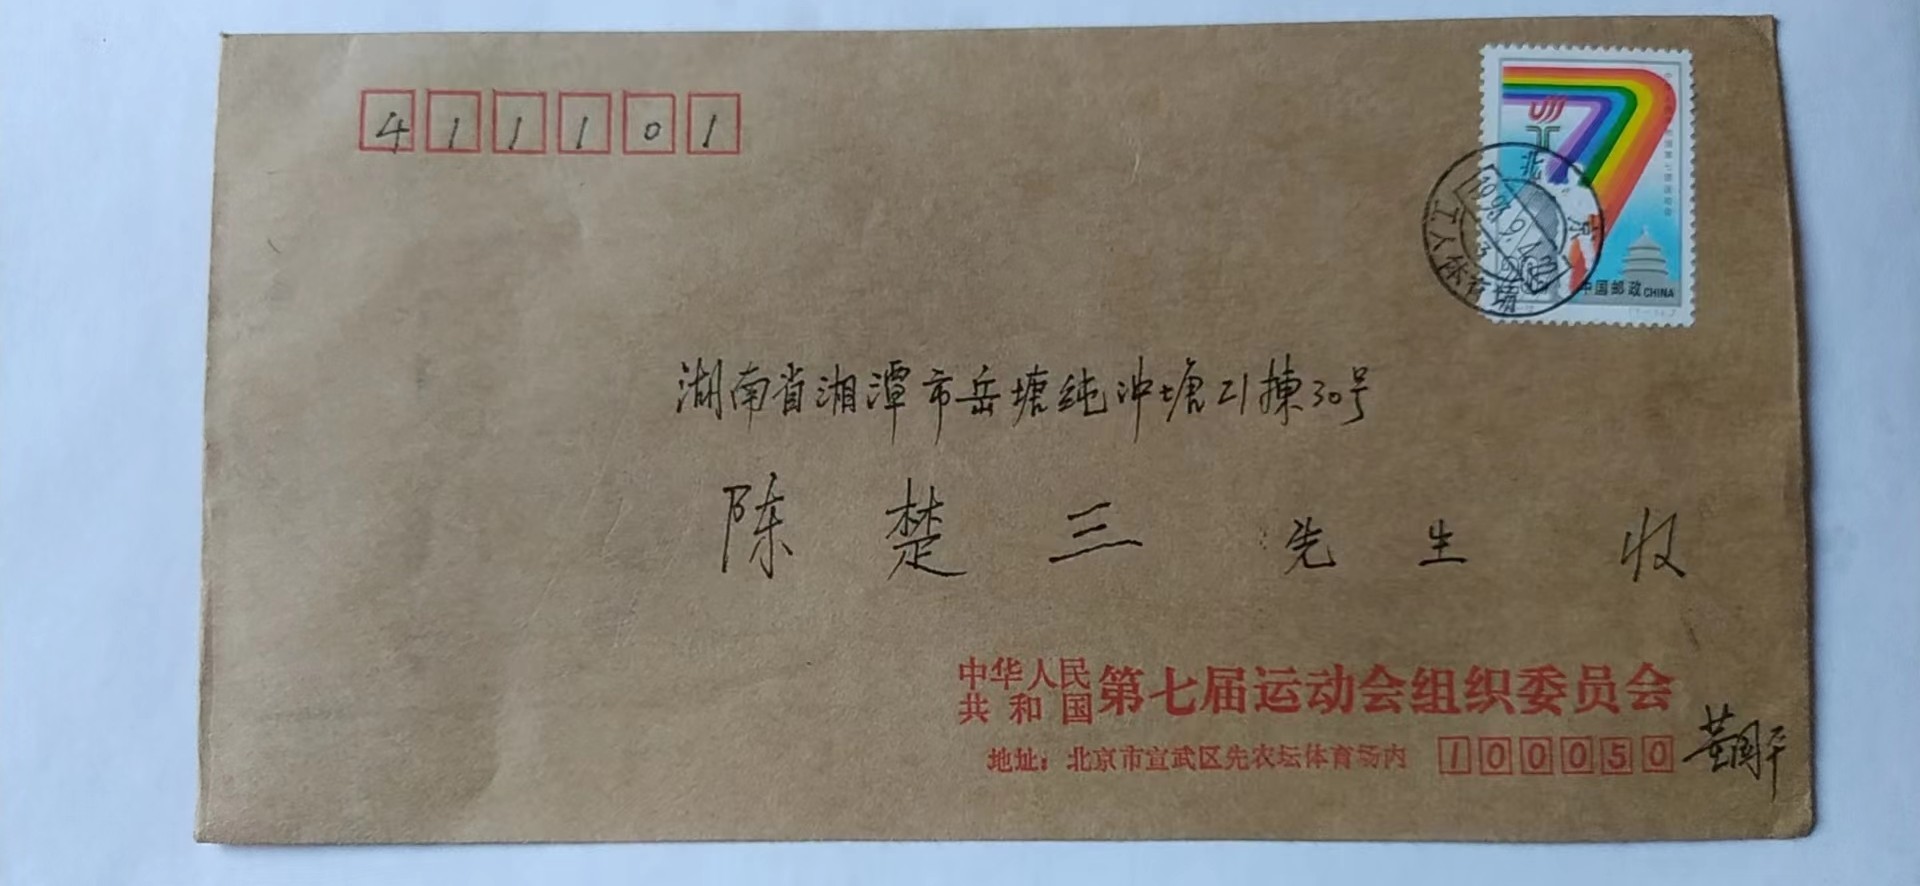 411101
中国邮政 CHINA
北京
工人体育场
湖南省湘潭市岳塘纯冲塘21揀30号
陈楚三 先生 收
中华人民共和国第七届运动会组织委员会
地址：北京市宣武区先农坛体育场内 100050